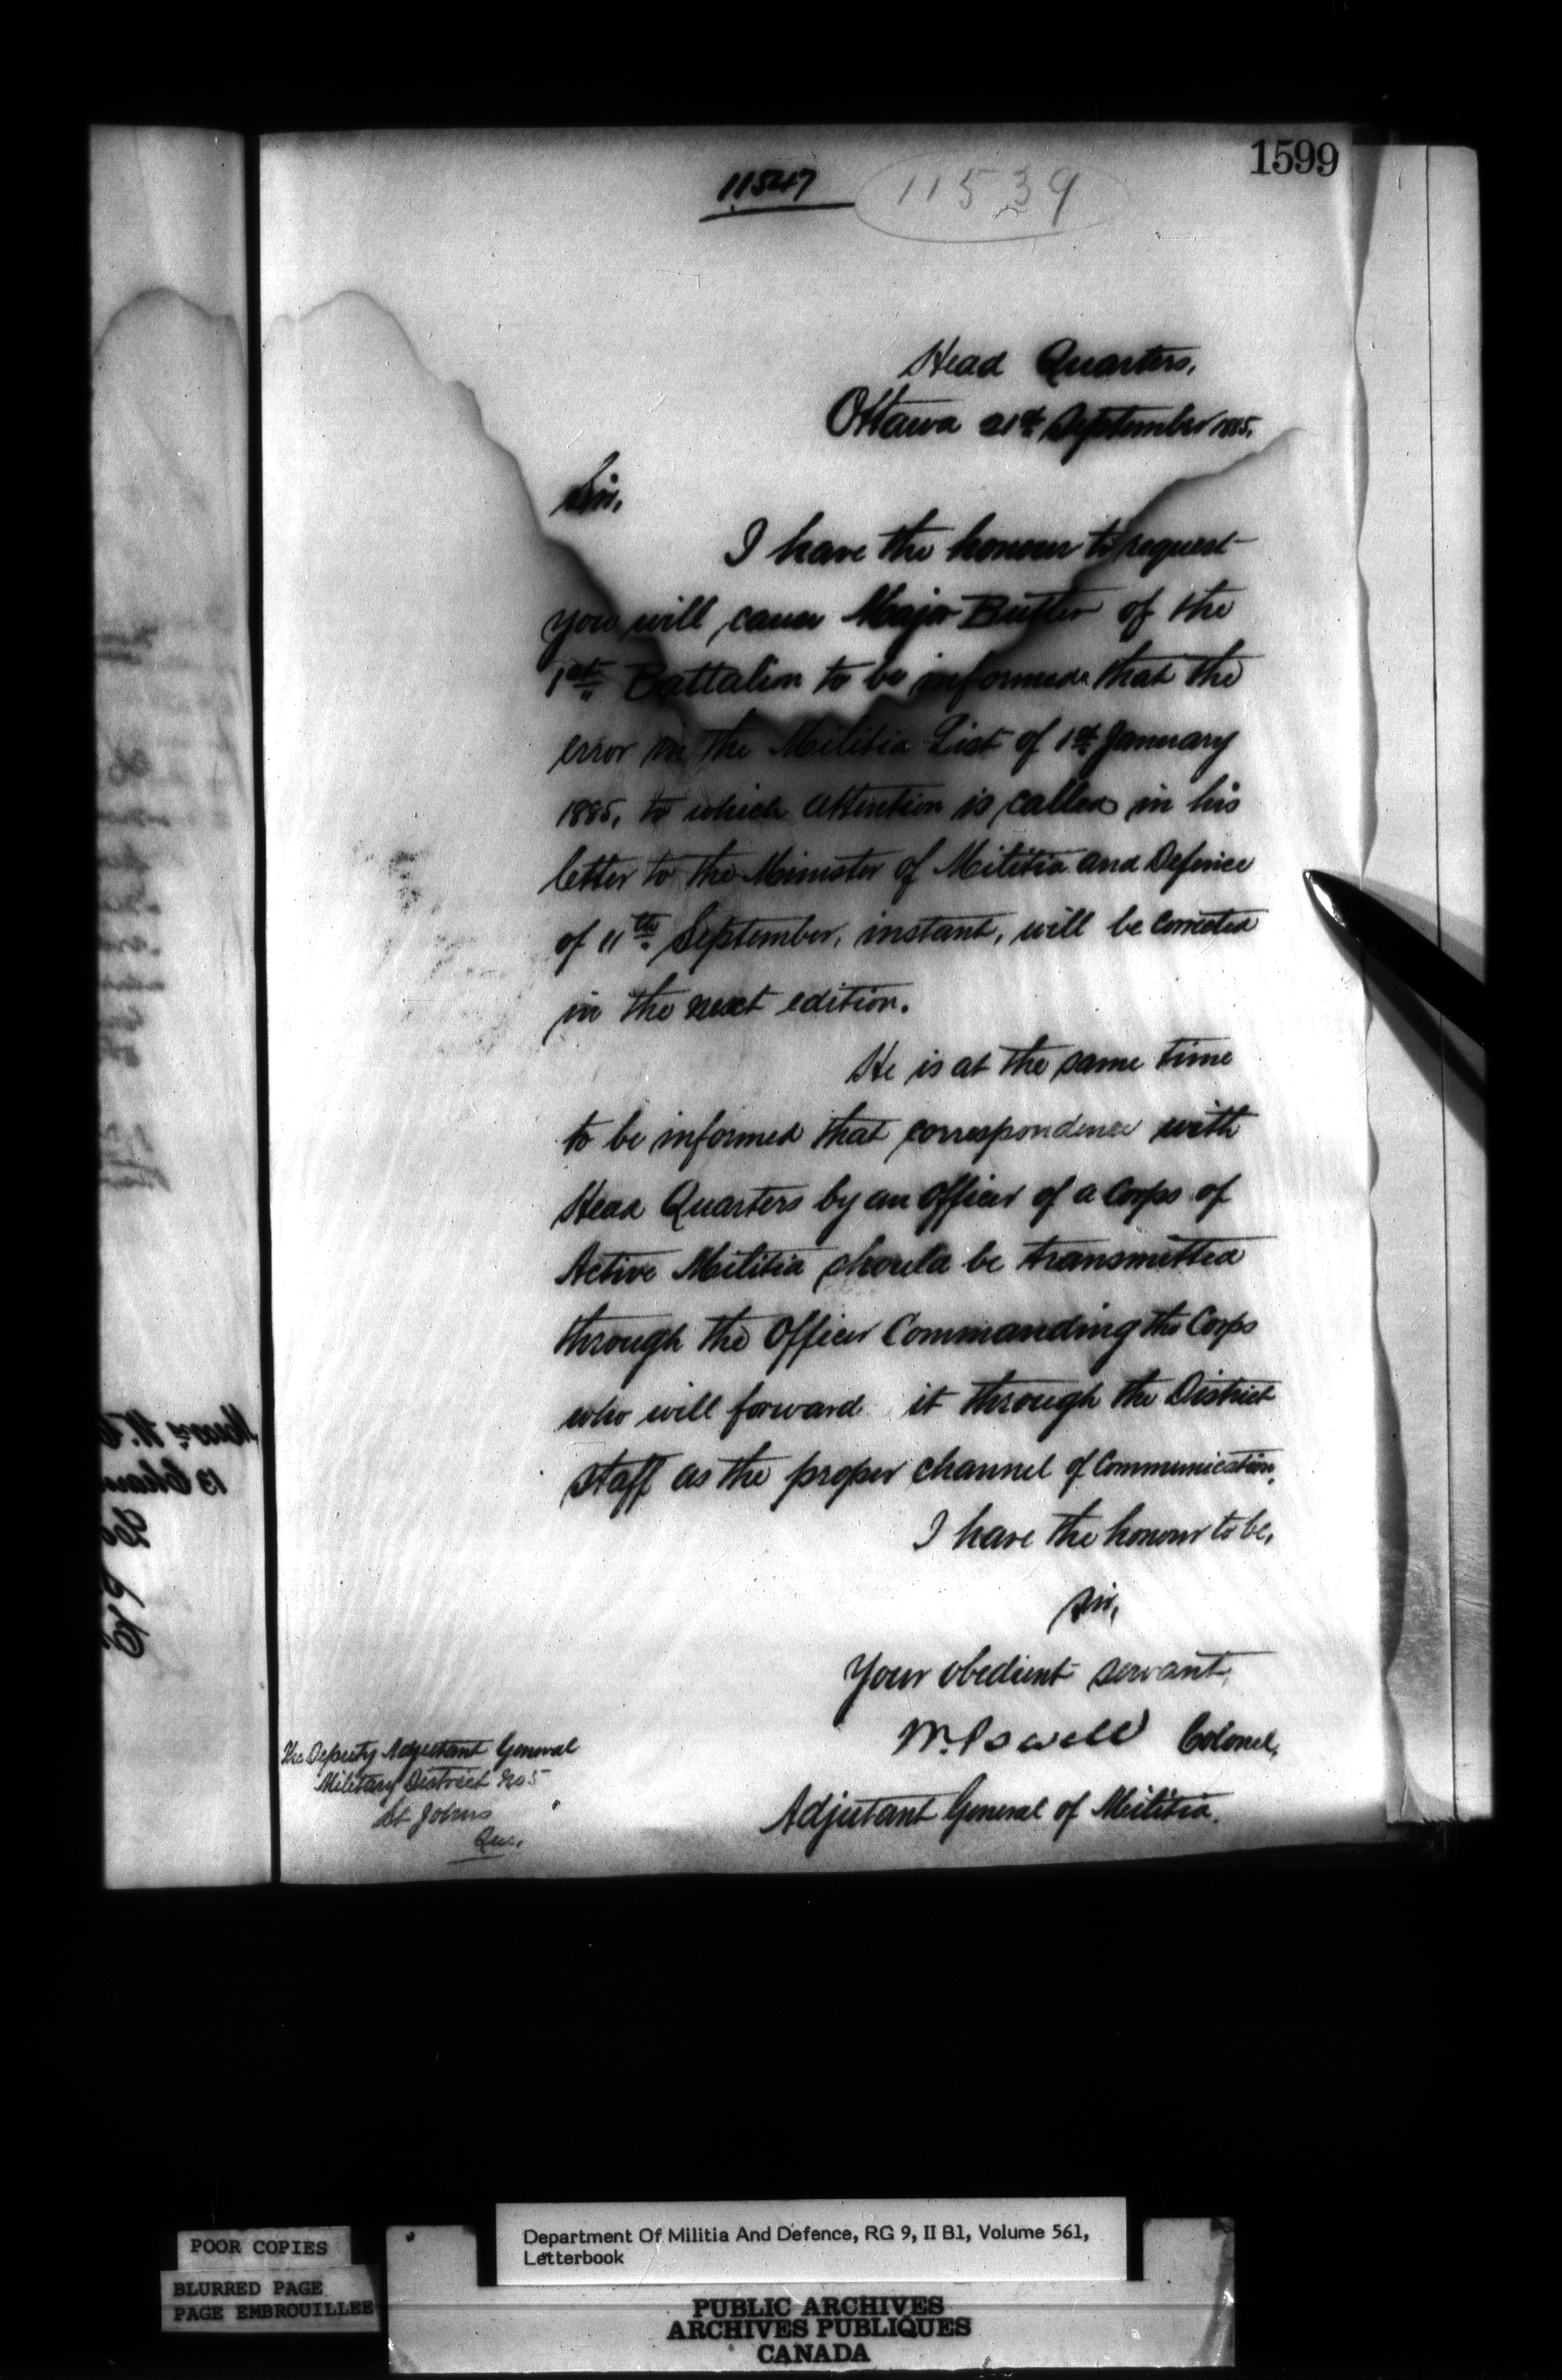 1599
11547
11539
Head Quarters,
Ottawa 21st September 1885.
Sir,
I have the honour to request
you will cause Major Butler of the
1st Battalion to be informed that the
error in the Militia List of 1st January
1885, to which attention is called in his
letter to the Minister of Militia and Defence
of 11th September, instant, will be corrected
in the next edition.
He is at the same time
to be informed that correspondence with
Head Quarters by an Officer of a Corps of
Active Militia should be transmitted
through the Officer Commanding the Corps
who will forward it through the District
Staff as the proper channel of Communication.
I have the honour to be,
Sir,
Your obedient servant,
W. Powell Colonel,
Adjutant General of Militia.
The Deputy Adjutant General
Military District No 5
St Johns
Que.
POOR COPIES
BLURRED PAGE
PAGE EMBROUILLEE
Department Of Militia And Defence, RG 9, II B1, Volume 561,
Letterbook
PUBLIC ARCHIVES
ARCHIVES PUBLIQUES
CANADA